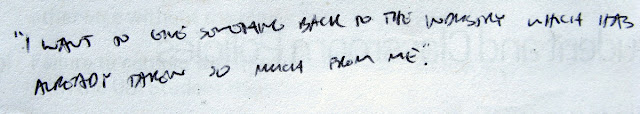 "I WANT TO GIVE SOMETHING BACK TO THE INDUSTRY WHICH HAS
ALREADY TAKEN SO MUCH FROM ME."